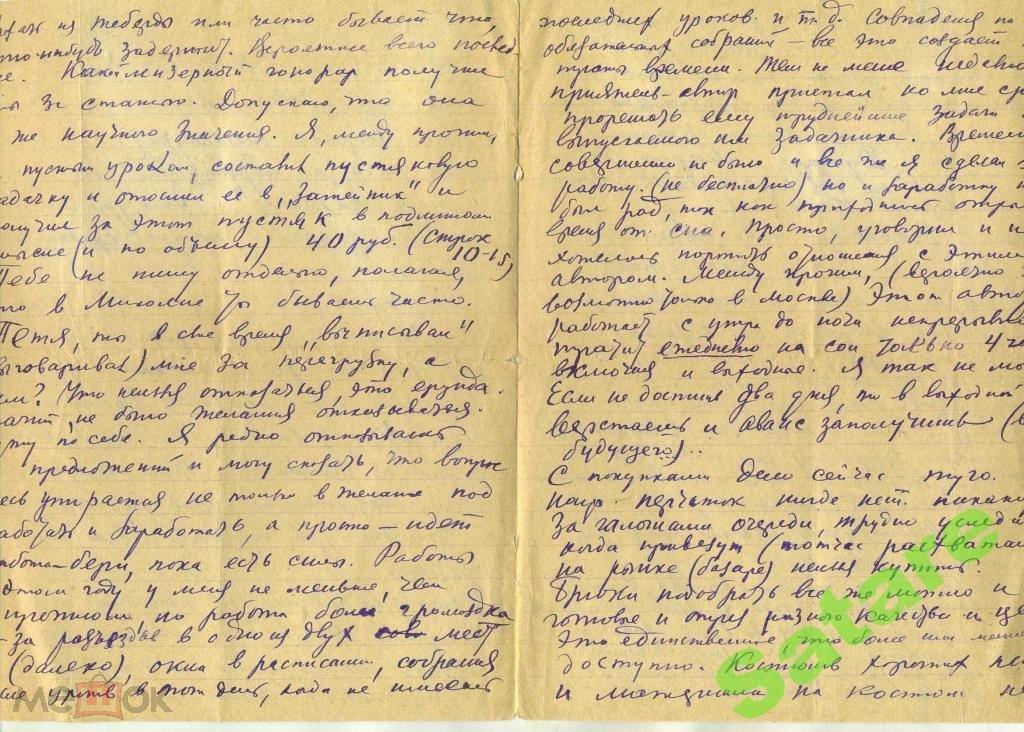 или часто бывает что,
задержит. Вероятнее всего
мизерный гонорар получил
за статью. Допускаю, что она
же научного значения. Я, между прочим,
пустым уроком, составил пустяковую
задачку и отослал ее в „Затейник" и
получил за этот пустяк в подлинном
смысле (и по объему) 40 руб. (строк
10-15)
Тебе не пишу отдельно, полагая,
что в бываешь часто.
Петя, ты в свое время „выписывал"
(выговаривал) мне за перегрузку, а
Что нельзя отказаться, это ерунда.
значит, не было желания отказываться.
по себе. Я редко отказываюсь
предложений и могу сказать, что вопрос
здесь упирается не только в желание под
работать и заработать, а просто – идет
работа – бери, пока есть силы. Работы
в этом году у меня не меньше, чем
в прошлом но работа более громоздка
из-за разъездов в одно из двух мест
(далеко), окна в расписании, собрания
в тот день, когда не имеешь
последних уроков и т.д. Совпадения по
обязательных собраний – все это создает
траты времени. Тем не менее недавно
приятель-автор пристал ко мне
прорешать ему труднейшие задачи
выпускаемого им задачника. Времени
совершенно не было и все же я сделал
работу. (не бесплатно) но и заработку
был рад, так как приходилось
время от сна. Просто, уговорил и
хотелось портить отношения с этим
автором. Между прочим, (вероятно
возможно только в Москве) Этот автор
работает с утра до ночи непрерывно
тратит ежедневно на сон только 4
включая и выходные. Я так не
Если не доспишь два дня, то в выходной
верстаешь и аванс заполучишь
будущего)..
С покупками дело сейчас туго.
напр. перчаток нигде нет.
За галошами очереди, трудно
когда привезут (тотчас расхватают
на рынке (базаре) нельзя купить.
Брюки подобрать все же можно и
готовые и отрез разного качества и
Это единственное что более или менее
доступно. Костюмов хороших
и материала на костюм
Satare
МЕШОК